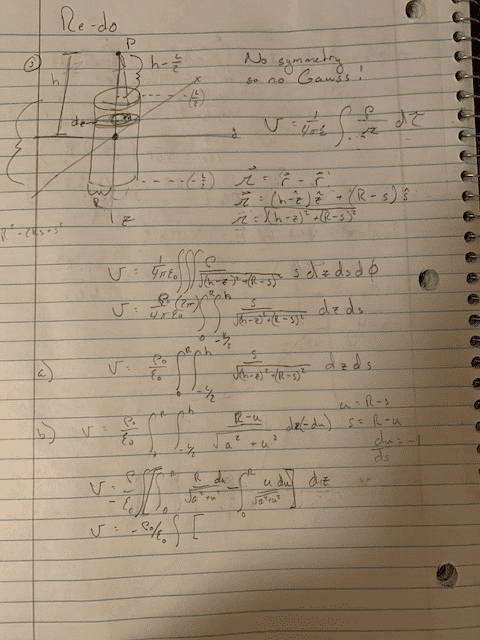 Re-do
③
P
h
h - L/2
x
(L/2)
dz
(-L/2)
R
z
No symmetry
so no Gauss!
V = 1/4πε ∫ ρ/𝓇 dτ
𝓇⃗ = r⃗ - r⃗'
𝓇⃗ = (h-z)ẑ + (R-s)ŝ
𝓇 = √(h-z)²+(R-s)²
R²-2Rs+s²
V = 1/4πε₀ ∫∫∫ ρ/√(h-z)²+(R-s)² s dz ds dϕ
V = ρ₀/4πε₀ (2π) ∫₀^R ∫_{-L/2}^h s/√(h-z)²+(R-s)² dz ds
a) V = ρ₀/ε₀ ∫^R ∫_{-L/2}^h s/√(h-z)²+(R-s)² dz ds
u = R-s
b) V = ρ₀/ε₀ ∫^R ∫_{-L/2}^h R-u/√a²+u² dz(-du) s = R-u
du/ds = -1
V = ρ/-ε₀ ∫[∫₀^R R du/√a²+u² - ∫₀^R u du/√a²+u²] dz
V = -ρ₀/ε₀ ∫ [